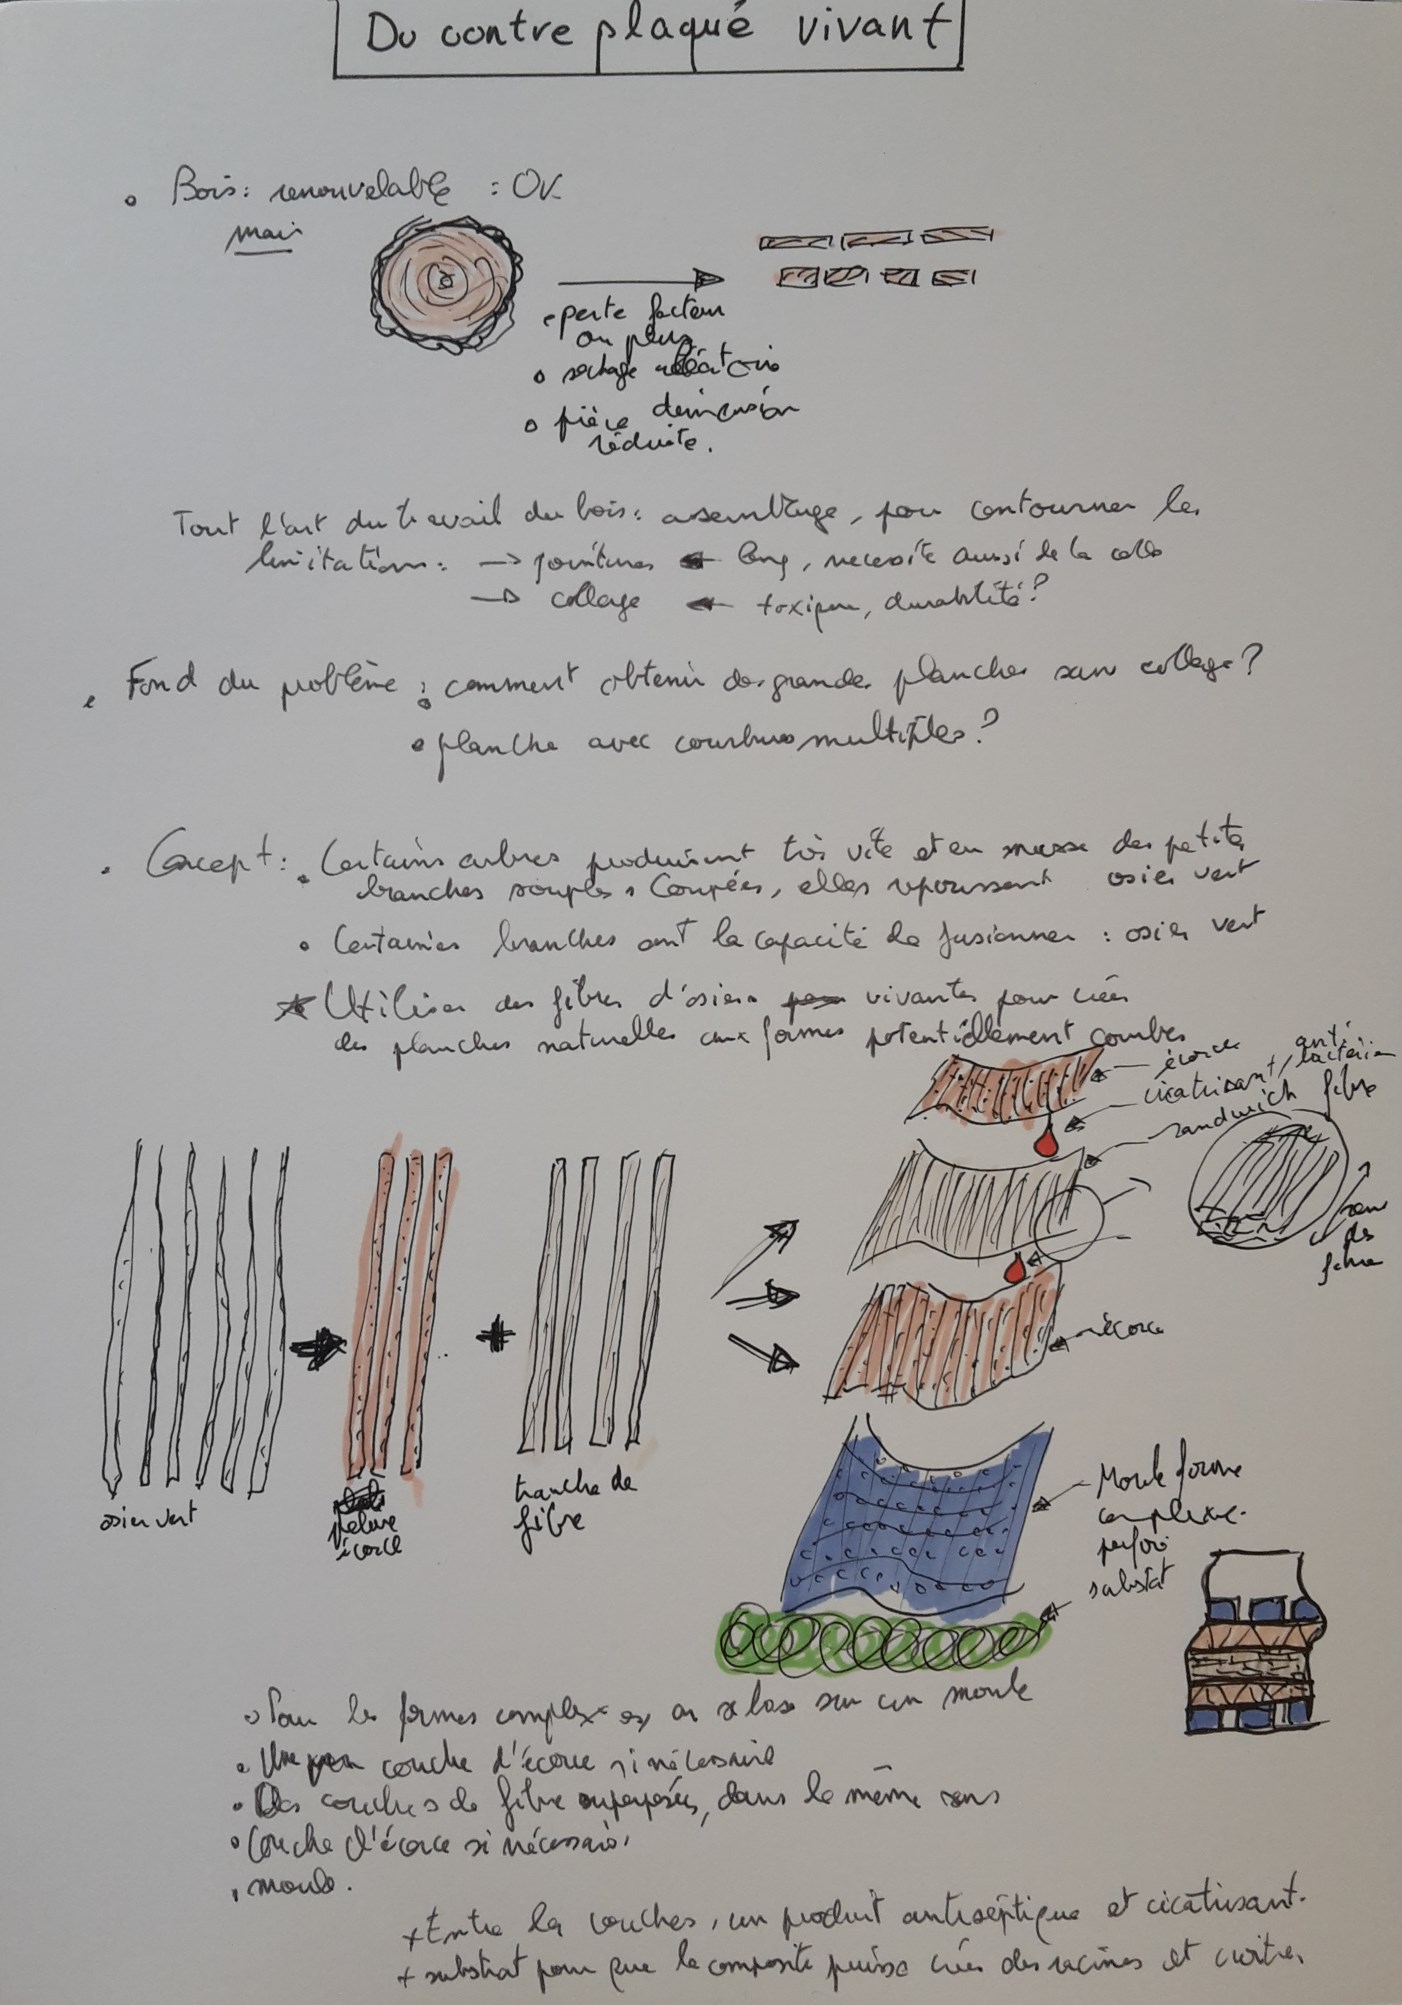 Du contre plaqué vivant
Bois : renouvelable : OK
mais
perte facteur
ou plus
sechage aléatoire
pièce dimension
réduite.
Tout l'art du travail du bois : assemblage, pour contourner les
limitations : → jointures ← long, necesite aussi de la colle
→ collage ← toxique, durabilité ?
Fond du problème : comment obtenir des grandes planches sans collage ?
planche avec courbures multiples ?
Concept : Certains arbres produisent très vite et en masse des petites
branches souples. Coupées, elles repoussent osier vert
Certaines branches ont la capacité de fusionner : osier vert
Utiliser des fibres d'osier vivantes pour créer
des planches naturelles aux formes potentiellement courbes
écorce
cicatrisant / anti bactérien
sandwich fibre
sens
des
fibre
écorce
osier vert
pelure
écorce
tranche de
fibre
Moule forme
complexe.
perforé
substrat
Pour les formes complexes, on se base sur un moule
Une couche d'écorce si nécessaire
Des couches de fibre superposées, dans le même sens
Couche d'écorce si nécessaire
moule.
+ Entre les couches, un produit antiseptique et cicatrisant.
+ substrat pour que le composite puisse créer des racines et croitre.